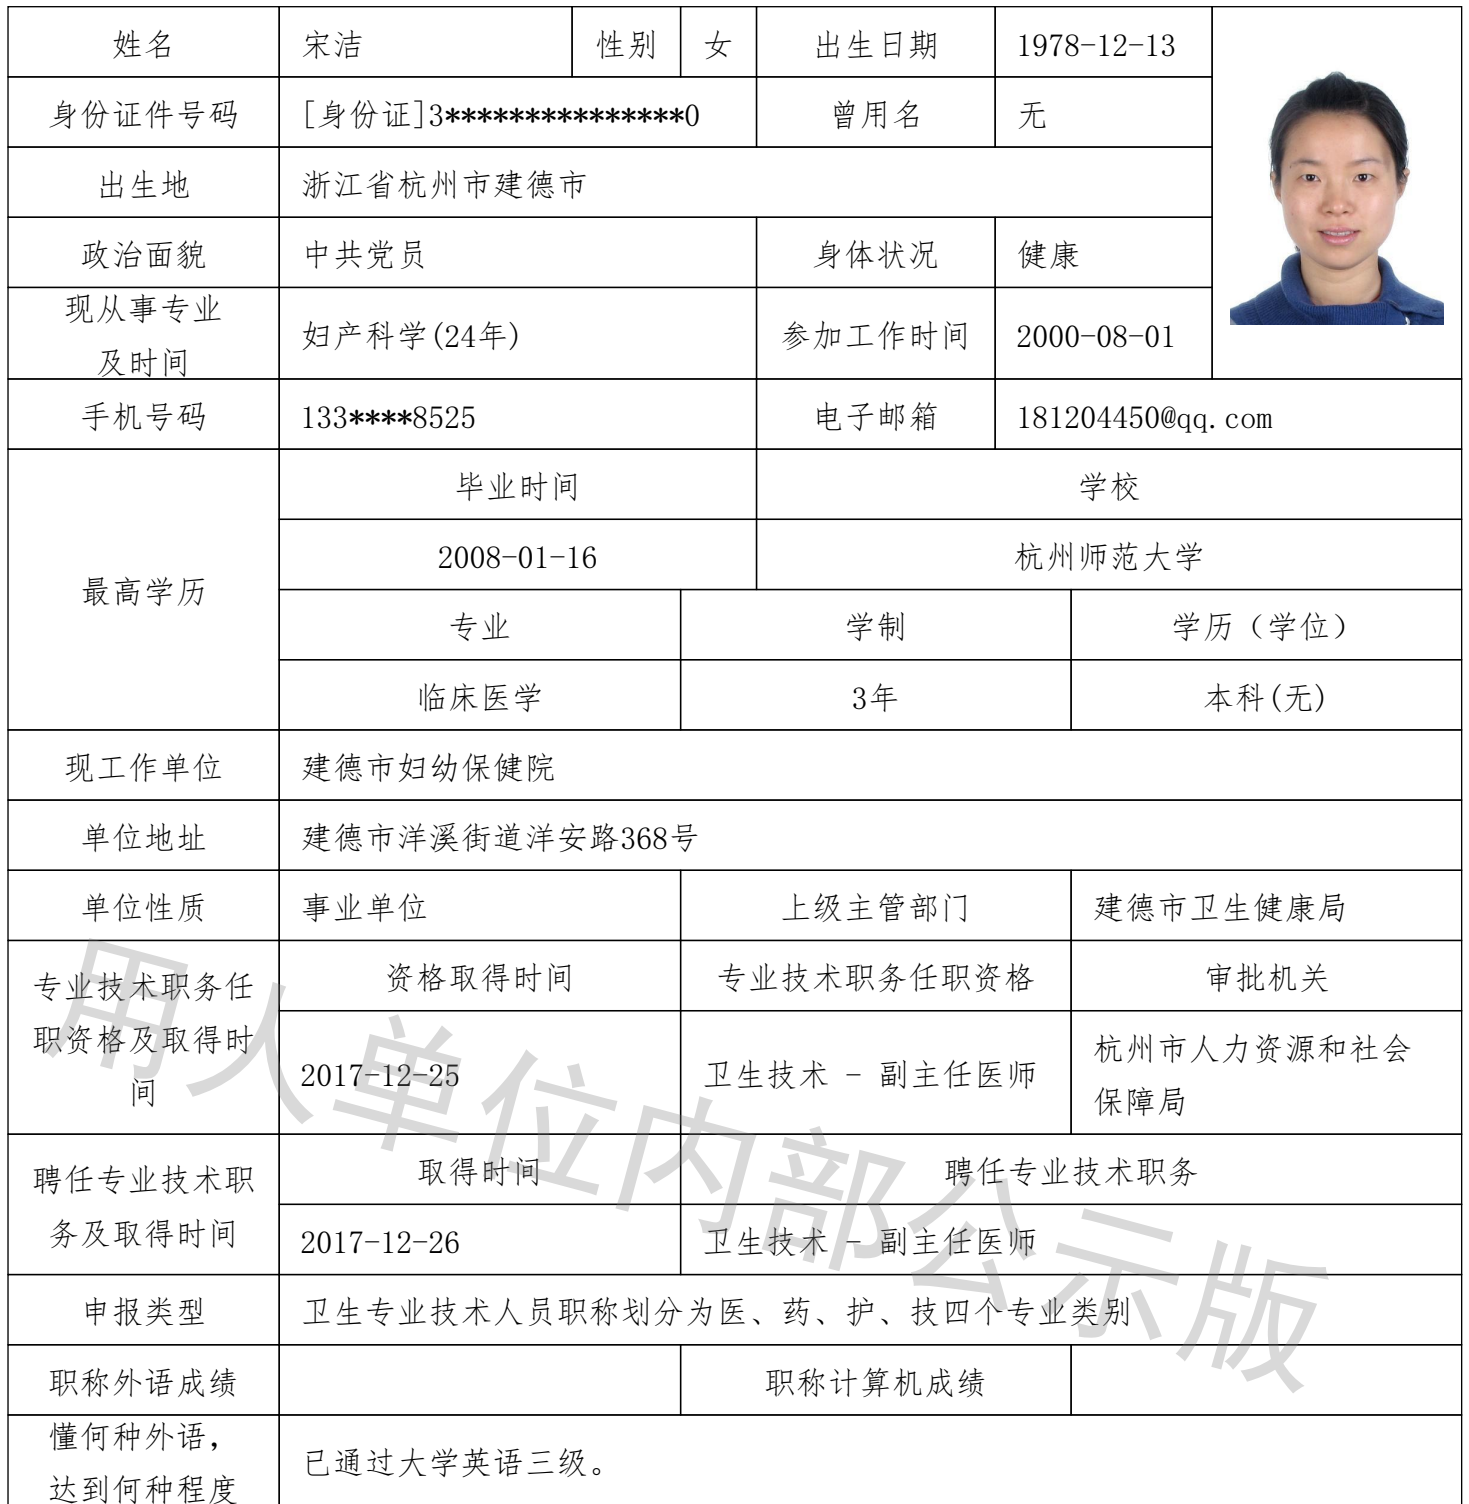 姓名 宋洁 性别 女 出生日期 1978-12-13
身份证件号码 [身份证]3***************0 曾用名 无
出生地 浙江省杭州市建德市
政治面貌 中共党员 身体状况 健康
现从事专业
及时间
妇产科学(24年) 参加工作时间 2000-08-01
手机号码 133****8525 电子邮箱 181204450@qq.com
最高学历
毕业时间 学校
2008-01-16 杭州师范大学
专业 学制 学历（学位）
临床医学 3年 本科(无)
现工作单位 建德市妇幼保健院
单位地址 建德市洋溪街道洋安路368号
单位性质 事业单位 上级主管部门 建德市卫生健康局
专业技术职务任
职资格及取得时
间
资格取得时间 专业技术职务任职资格 审批机关
2017-12-25 卫生技术 - 副主任医师 杭州市人力资源和社会
保障局
聘任专业技术职
务及取得时间
取得时间 聘任专业技术职务
2017-12-26 卫生技术 - 副主任医师
申报类型 卫生专业技术人员职称划分为医、药、护、技四个专业类别
职称外语成绩 职称计算机成绩
懂何种外语，
达到何种程度
已通过大学英语三级。
用人单位内部公示版